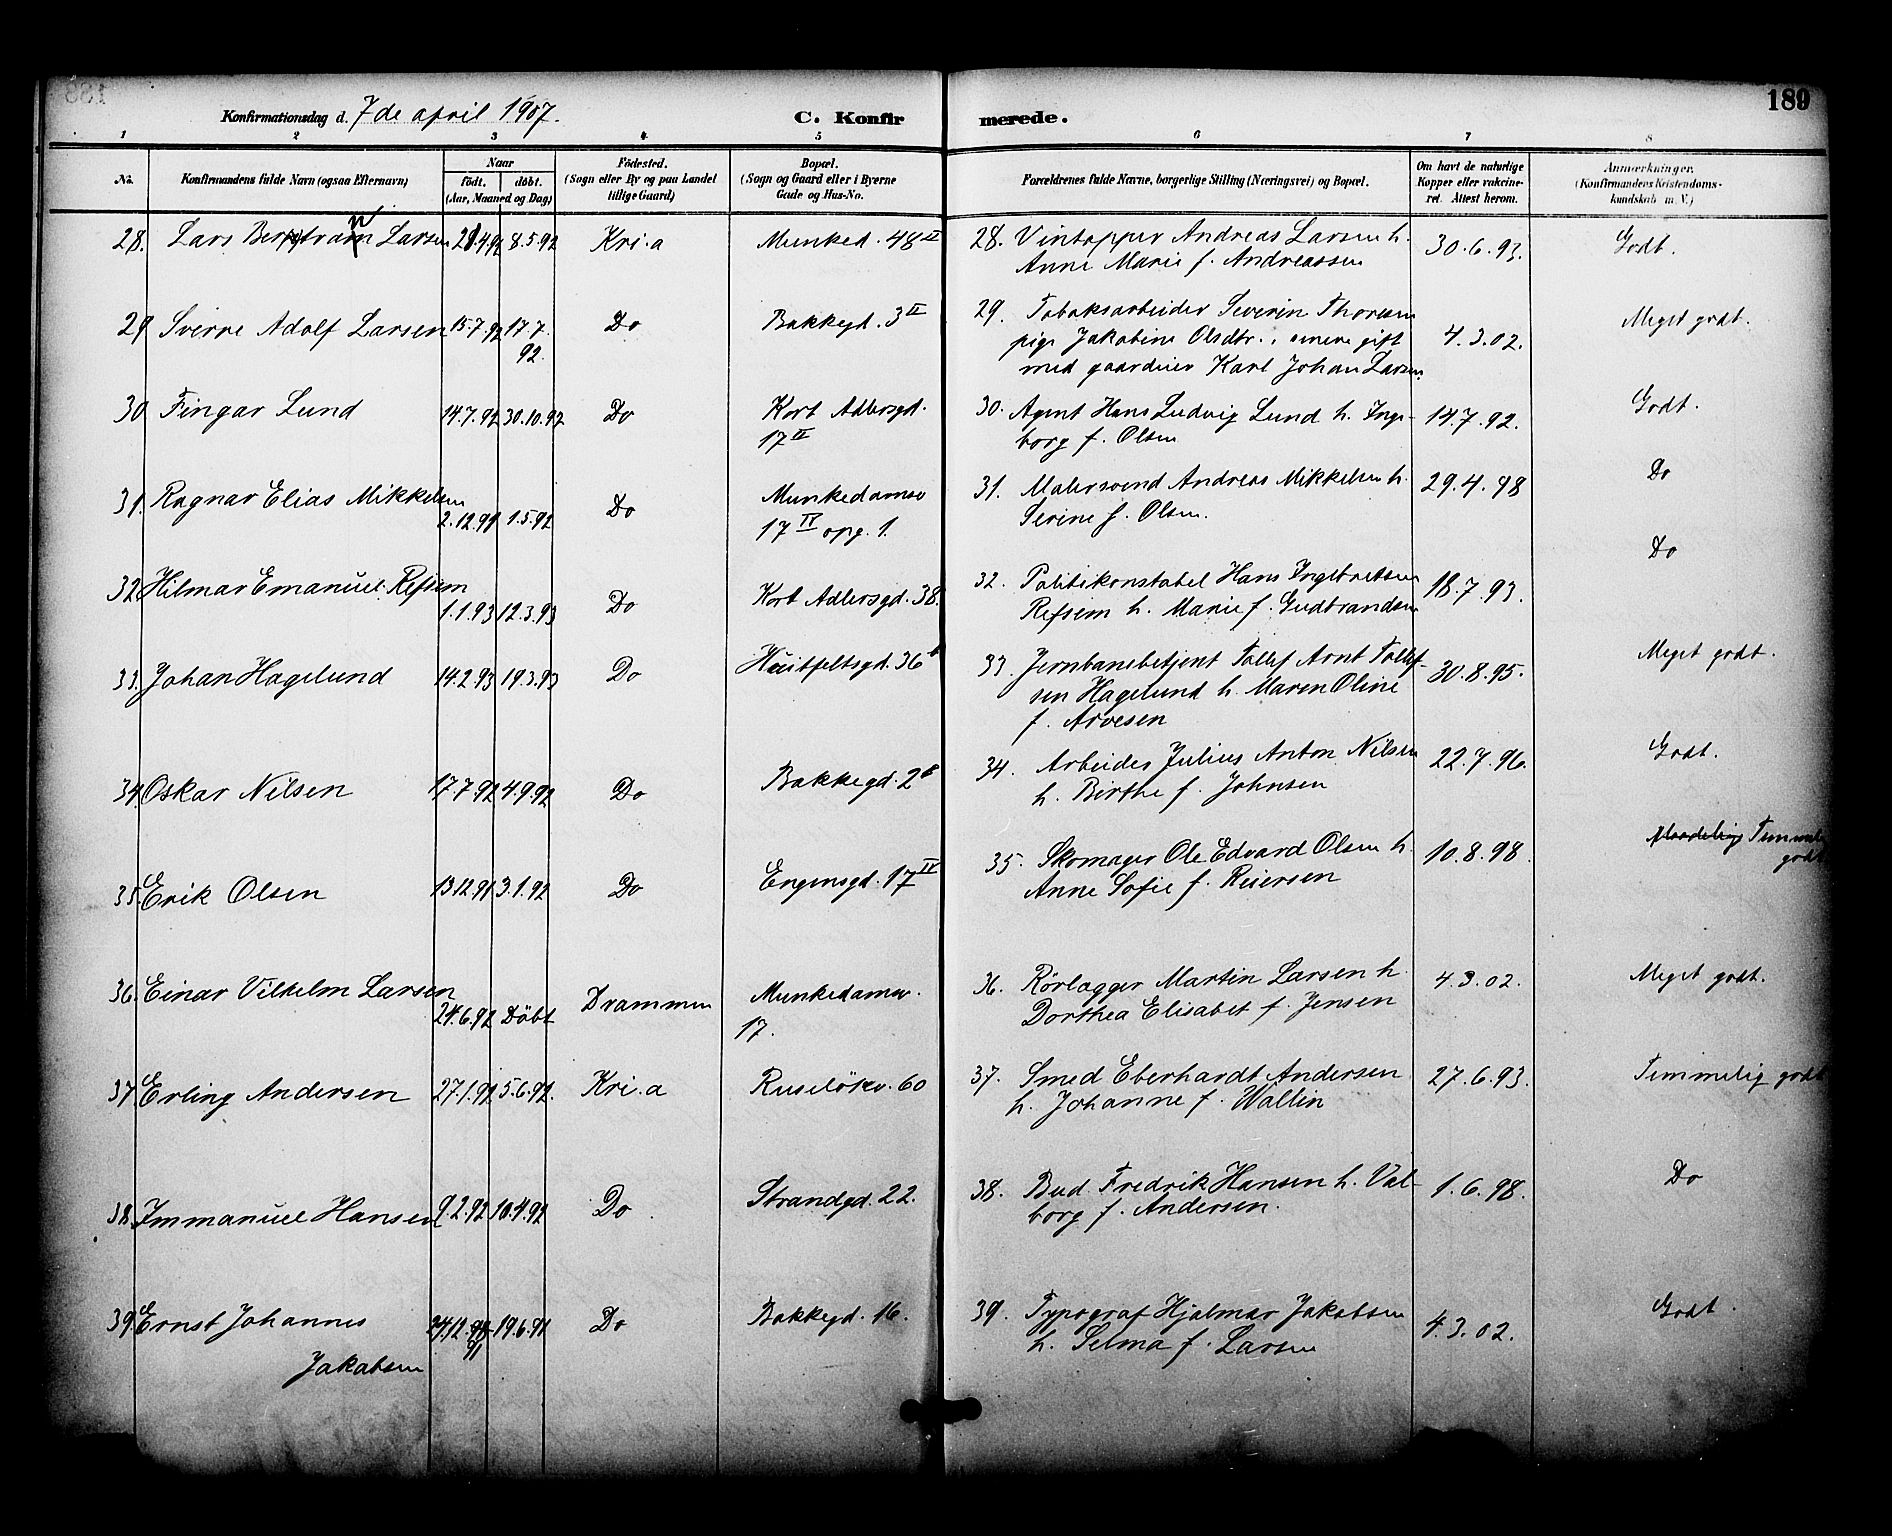 189
Konfirmationsdag d. 7de april 1907.
C. Konfirmerede.
1 2 3 4 5 6 7 8
No.
Konfirmandens fulde Navn (ogsaa Efternavn)
Naar
födt. döbt.
(Aar, Maaned og Dag)
Födested.
(Sogn eller By og paa Landet
tillige Gaard)
Bopæl.
(Sogn og Gaard eller i Byerne
Gade og Hus-No.
Forældrenes fulde Navne, borgerlige Stilling (Næringsvei) og Bopæl.
Om havt de naturlige
Kopper eller vakcine-
ret. Attest herom.
Anmærkninger.
(Konfirmandens Kristendoms-
kundskab m. V.)
28. Lars Larsen 8.5.92 Kri.a Munked. 48 II
28. Vintapper Andreas Larsen h. 30.6.93. Godt.
Anne Marie f. Andreassen
29 Sverre Adolf Larsen 15.7.92 17.7. Do Bakkegd. 3 II
92.
29. Tobaksarbeider Severin Thoresen Meget godt.
pige Jakobine Olsdtr., senere gift 4.3.02.
med gaardeier Karl Johan Larsen
30. Fingar Lund 14.7.92 30.10.92 Do Kort Adlersgd.
17 II
30. Agent Hans Ludvig Lund h. Inge- 14.7.92. Godt.
borg f. Olsen
31. Ragnar Elias Mikkelsen Munkedamsv
2.12.91 1.5.92 Do 17 IV opg. 1.
31. Malersvend Andreas Mikkelsen h. 29.4.98 Do
Serine f. Olsen.
32. Hilmar Emanuel Refsem
1.1.93 12.3.93 Do Kort Adlersgd. 38.
32. Politikonstabel Hans Ingebretsen 18.7.93. Do
Refsem h. Marie f. Gudbrandsen
33. Johan Hagelund 14.2.93 19.3.93 Do Huitfeltsgd. 36 b
33. Jernbanebetjent Tollef Arnt Tollef- 30.8.95. Meget godt.
sen Hagelund h. Maren Oline
f. Arvesen
34. Oskar Nilsen 17.7.92 4.9.92 Do Bakkegd. 2
34. Arbeider Julius Anton Nilsen 22.7.96. Godt.
h. Birthe f. Johnsen
35. Erik Olsen 13.12.91 3.1.92 Do Engensgd. 17 IV
35. Skomager Ole Edvard Olsen h. 10.8.98. Maadelig Temmelig
Anne Sofie f. Reiersen godt
36. Einar Vilhelm Larsen Munkedamsv.
24.6.92 Döbt Drammen 17.
36. Rørlægger Martin Larsen h. 4.3.02. Meget godt.
Dorthea Elisabet f. Jensen
37. Erling Andersen 27.1.92 5.6.92. Kri.a Ruselökv. 60
37. Smed Eberhardt Andersen 27.6.93. Temmelig godt
h. Johanne f. Wallin
38. Immanuel Hansen 9.2.92 10.4.92 Do Strandgd. 22.
38. Bud Fredrik Hansen h. Val- 1.6.98. Do
borg f. Andersen.
39. Ernst Johannes 19.6.91 Do Bakkegd. 16.
91
Jakobsen
39. Typograf Hjalmar Jakobsen 4.3.02. Godt.
h. Selma f. Larsen